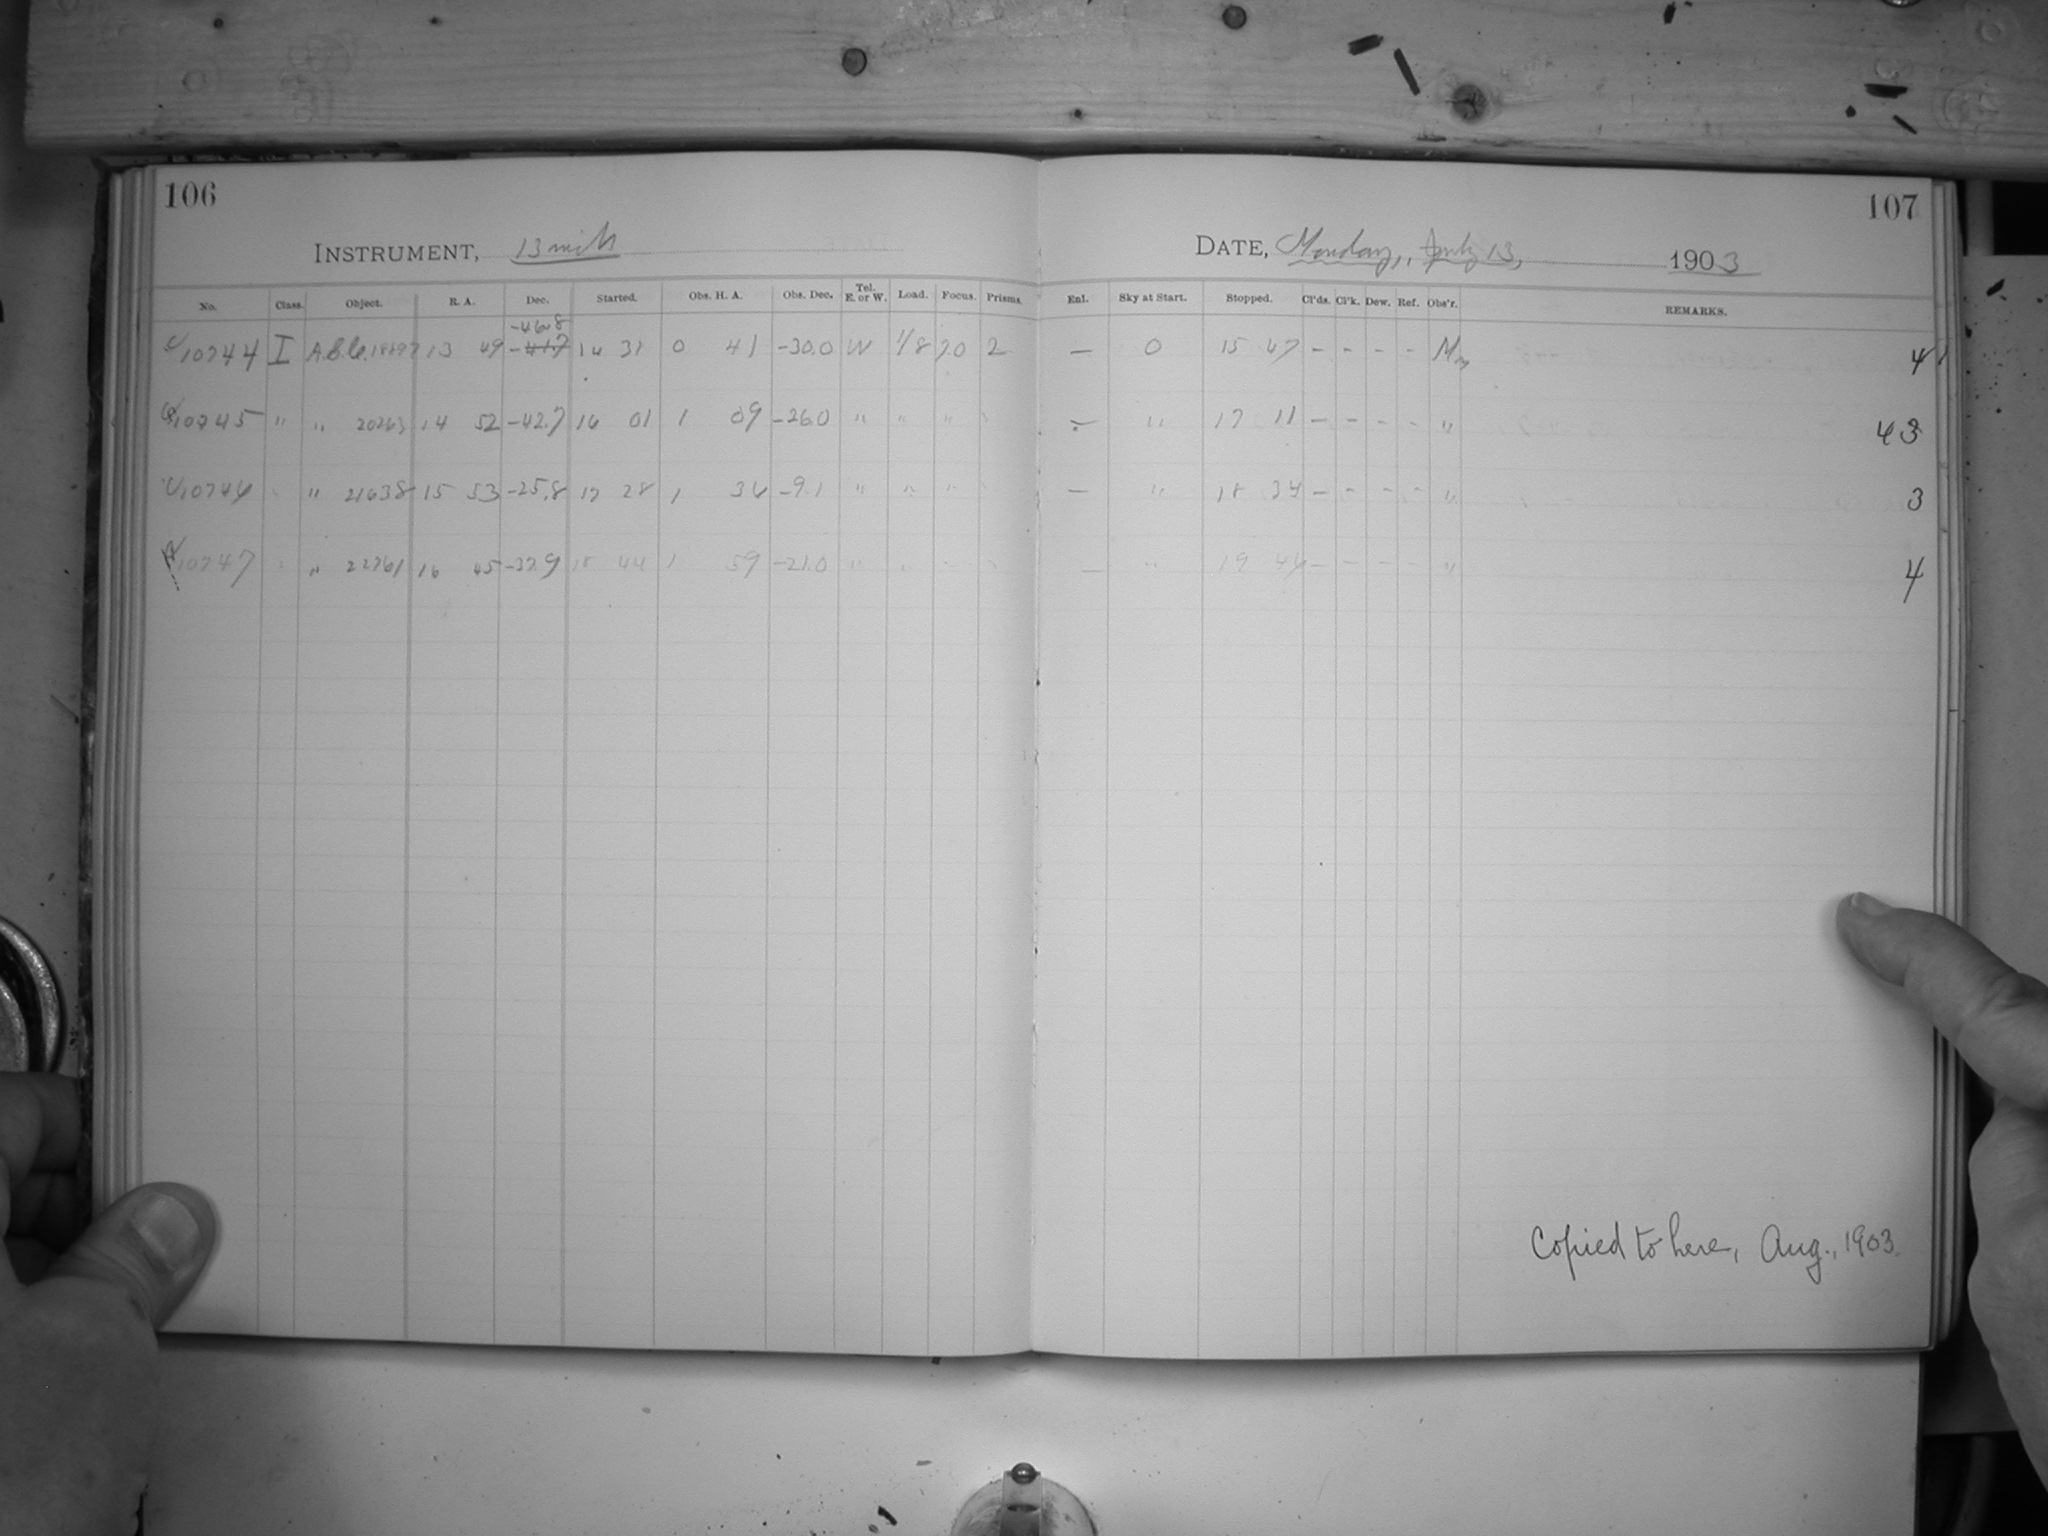 106
107
INSTRUMENT, 13 inch
DATE, Monday, July 13, 1903
No. Class. Object. R. A. Dec. Started. Obs. H. A. Obs. Dec. Tel. E. or W. Load. Focus. Prisms. Enl. Sky at Start. Stopped. Cl'ds. Cl'k. Dew. Ref. Obs'r. REMARKS.
-46.8
10744 I A.G.C. 18897 13 49 -41.7 14 31 0 41 -30.0 W 1/8 7.0 2 — 0 15 47 - - - - 4
10745 " " 20263 14 52 -42.7 16 01 1 09 -26.0 " " " — " 17 11 - - - - " 43
10746 " 21638 15 53 -25.8 17 28 1 36 -9.1 " " " — " 18 34 - - - - " 3
10747 " 22761 16 45 -37.9 18 44 1 59 -21.0 " " — " 19 44 - - - - " 4
Copied to here, Aug., 1903.